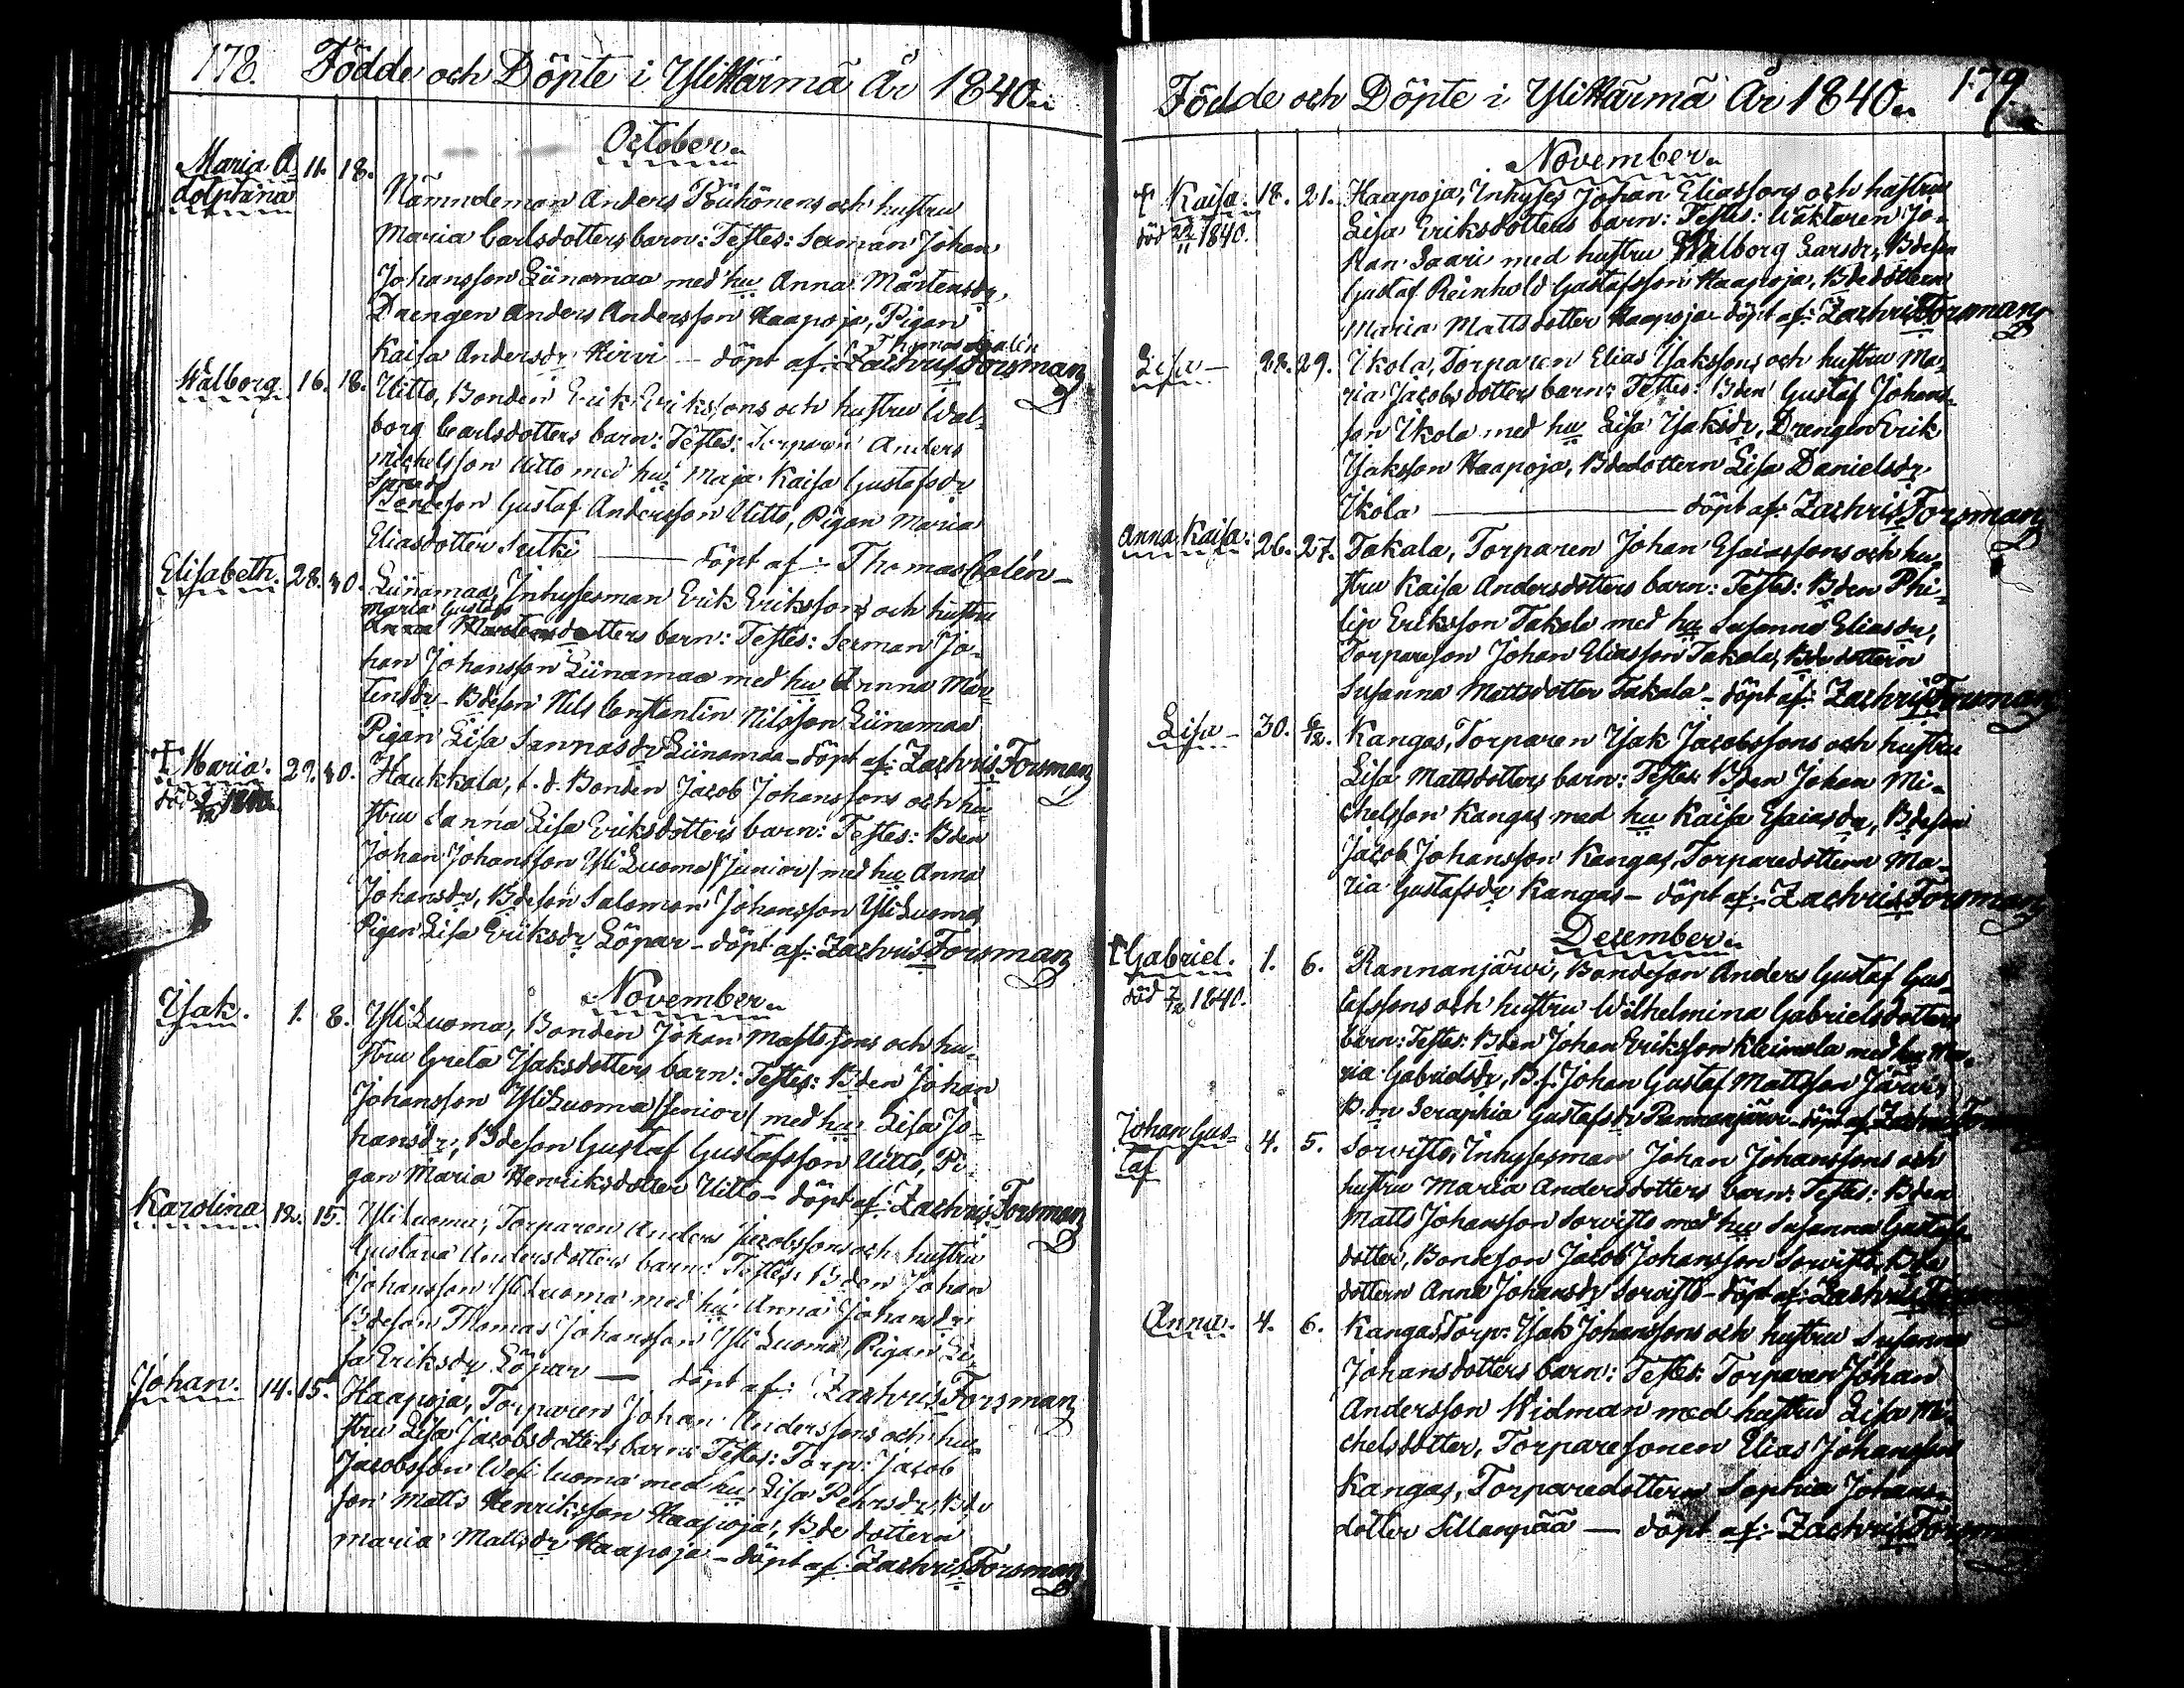 178. Födde och Döpte i YliHärmä År 1840.
October.
Maria A 11. 18.
dolphina
Nämndeman Anders Pöuhönens och hustru
Maria Carlsdotters barn: Testes: Sexman Johan
Johansson Liinamaa med hu Anna Mårtensdr,
Drengen Anders Andersson Haapoja, Pigan
Thomas Calén
Kaisa Andersdr Hirvi — döpt af: Zachris Forsman
Walborg. 16. 18. Uitto, Bonden Erik Erikssons och hustru Wal-
borg Carlsdotters barn: Testes: Torparen Anders
Michelsson Uitto med hu: Maja Kaisa Gustafsdr
Bondeson Gustaf Andersson Uitto, Pigan Maria
Eliasdotter Sutki — döpt af: Thomas Calén —
Elisabeth. 28. 30. Liinamaa, Inhysesman Erik Erikssons och hustru
Maria Gustafs
Anna Mårtensdotters barn: Testes: Sexman Jo-
han Johansson Liinamaa med hu Annna Mår-
tensdr — Bdeson Nils Constantin Nilsson Liinamaa
Pigan Lisa Sannasdr Liinamaa — döpt af: Zachris Forsman
† Maria. 29. 30. Haukkala, t. d. Bonden Jacob Johanssons och hu-
död /12 1840.
stru Sanna Lisa Eriksdotters barn: Testes: Bden
Johan Johansson YliLuoma /junior/ med hu Anna
Johansdr, Bdeson Salomon Johansson YliLuoma
Pigan Lisa Eriksdr Löpar — döpt af: Zachris Forsman
November.
Isak. 1. 8. YliLuoma, Bonden Johan Mattssons och hu-
stru Greta Isaksdotters barn: Testes: Bden Johan
Johansson YliLuoma /senior/ med hu. Lisa Jo-
hansdr, Bdeson Gustaf Gustafsson Uitto, Pi-
gan Maria Henriksdotter Uitto — döpt af: Zachris Forsman
Karolina 12. 15. YliLuoma, Torparen Anders Jacobssons och hustru
Gustava Andersdotters barn: Testes: Bden Johan
Johansson YliLuoma med hu Anna Johansdr
Bdeson Thomas Johansson YliLuoma, Pigan Li-
sa Eriksdr Löpar — döpt af: Zachris Forsman
Johan. 14. 15. Haapoja, Torparen Johan Anderssons och hu-
stru Lisa Jacobsdotters barn: Testes: Torp: Jacob
Jacobsson Wesiluoma med hu Lisa Pehrsdr, Bde
son Matts Henriksson Haapoja, Bde dottern
Maria Mattsdr Haapoja — döpt af: Zachris Forsman
Födde och Döpte i YliHärmä År 1840. 179
November.
† Kaisa. 18. 21. Haapoja, Inhyses Johan Eliassons och hustru
död 22/11 1840.
Lisa Eriksdotters barn: Testes: Wäktaren Jo-
han Saari med hustru Walborg Larsdr, Bdeson
Gustaf Reinhold Gustafsson Haapoja, Bdedottern
Maria Mattsdotter Haapoja — döpt af: Zachris Forsman
Lisa — 28. 29. Ikola, Torparen Elias Isakssons och hustru Ma-
ria Jacobsdotters barn: Testes: Bden Gustaf Johans-
son Ikola med hu Lisa Isaksdr, Drengen Erik
Isaksson Haapoja, Bdedottern Lisa Danielsdr
Ikola — döpt af: Zachris Forsman
Anna Kaisa. 26. 27. Takala, Torparen Johan Esaiassons och hu-
stru Kaisa Andersdotters barn: Testes: Bden Phi-
lip Eriksson Takala med hu Susanna Eliasdr,
Torpareson Johan Eliasson Takala, Bdedottern
Susanna Mattsdotter Takala — döpt af: Zachris Forsman
Lisa — 30. 6/12. Kangas, Torparen Isak Jacobssons och hustru
Lisa Mattsdotters barn: Testes: Bden Johan Mi-
chelsson Kangas med hu Kaisa Esaiasdr, Bdeson
Jacob Johansson Kangas, Torparedottern Ma-
ria Gustafsdr Kangas — döpt af: Zachris Forsman
December.
† Gabriel. 1. 6. Rannanjärvi, Bondeson Anders Gustaf Gus-
död 7/12 1840.
tafssons och hustru Wilhelmina Gabrielsdotters
barn: Testes: Bden Johan Eriksson Kleimola med hu Ma-
ria Gabrielsdr, B.s. Johan Gustaf Mattsson Järvi,
B.dn Seraphia Gustafsdr Rannanjärvi — döpt af: Zachris Forsman
Johan Gus- 4. 5. Sorvisto, Inhysesman Johan Johanssons och
taf
hustru Maria Andersdotters barn: Testes: Bden
Matts Johansson Sorvisto med hu Susanna Gustafs-
dotter, Bondeson Jacob Johansson Sorvisto, Bde
dottern Anna Johansdr Sorvisto — döpt af: Zachris Forsman
Anna. 4. 6. Kangas, Torp: Isak Johanssons och hustru Susanna
Johansdotters barn: Testes: Torparen Johan
Andersson Widman med hustru Lisa Mi-
chelsdotter, Torparesonen Elias Johansson
Kangas, Torparedottern Sophia Johans-
dotter Sillanpää — döpt af: Zachris Forsman